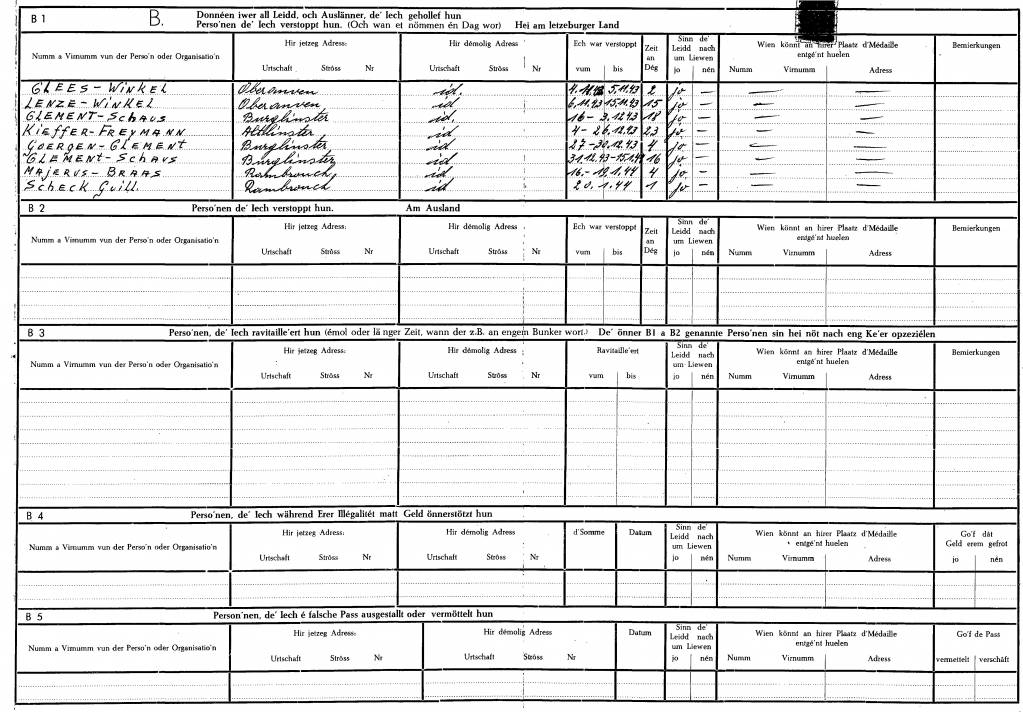 B 1 B. Donnéen iwer all Leidd, och Auslänner, de' Iech gehollef hun
Perso'nen de' Iech verstoppt hun. (Och wan et nömmen én Dag wor) Hei am letzeburger Land
Numm a Virnumm vun der Perso'n oder Organisatio'n Hir jetzeg Adress: Hir démolig Adress Ech war verstoppt Zeit an Dég Sinn de' Leidd nach um Liewen Wien könnt an hirer Plaatz d'Médaille entgé'nt huelen Bemierkungen
Urtschaft Ströss Nr Urtschaft Ströss Nr vum bis jo nén Numm Virnumm Adress
GLEES - WINKEL Oberanven id. 4.11.43 5.11.43 2 jo — — —
LENZE - WINKEL Oberanven id 6.11.43 15.11.43 15 jo — — —
CLEMENT - SCHAUS Burglinster id. 16 - 3.12.43 18 jo — — —
KIEFFER - FREYMANN Altlinster id 4 - 26.12.43 23 jo — — —
GOERGEN - CLEMENT Burglinster id 27 - 30.12.43 4 jo — — —
CLEMENT - SCHAUS Burglinster id 31.12.43 - 15.1.44 16 jo — — —
MAJERUS - BRAAS Rambrouch id 16. - 19.1.44 4 jo — — —
SCHECK Guill. Rambrouch id 20.1.44 1 jo — — —
B 2 Perso'nen de' Iech verstoppt hun. Am Ausland
Numm a Virnumm vun der Perso'n oder Organisatio'n Hir jetzeg Adress: Hir démolig Adress Ech war verstoppt Zeit an Dég Sinn de' Leidd nach um Liewen Wien könnt an hirer Plaatz d'Médaille entgé'nt huelen Bemierkungen
Urtschaft Ströss Nr Urtschaft Ströss Nr vum bis jo nén Numm Virnumm Adress
B 3 Perso'nen, de' Iech ravitaille'ert hun (émol oder länger Zeit, wann der z.B. an engem Bunker wort.) De' önner B1 a B2 genannte Perso'nen sin hei nöt nach eng Ke'er opzeziélen
Numm a Virnumm vun der Perso'n oder Organisatio'n Hir jetzeg Adress: Hir démolig Adress Ravitaille'ert Sinn de' Leidd nach um Liewen Wien könnt an hirer Plaatz d'Médaille entgé'nt huelen Bemierkungen
Urtschaft Ströss Nr Urtschaft Ströss Nr vum bis jo nén Numm Virnumm Adress
B 4 Perso'nen, de' Iech während Erer Illégalitét matt Geld önnerstötzt hun
Numm a Virnumm vun der Perso'n oder Organisatio'n Hir jetzeg Adress: Hir démolig Adress d'Somme Datum Sinn de' Leidd nach um Liewen Wien könnt an hirer Plaatz d'Médaille entgé'nt huelen Go'f dát Geld erem gefrot
Urtschaft Ströss Nr Urtschaft Ströss Nr jo nén Numm Virnumm Adress jo nén
B 5 Person'nen, de' Iech é falsche Pass ausgestallt oder vermöttelt hun
Numm a Virnumm vun der Perso'n oder Organisatio'n Hir jetzeg Adress: Hir démolig Adress Datum Sinn de' Leidd nach um Liewen Wien könnt an hirer Plaatz d'Médaille entgé'nt huelen Go'f de Pass
Urtschaft Ströss Nr Urtschaft Ströss Nr jo nén Numm Virnumm Adress vermettelt verschäft